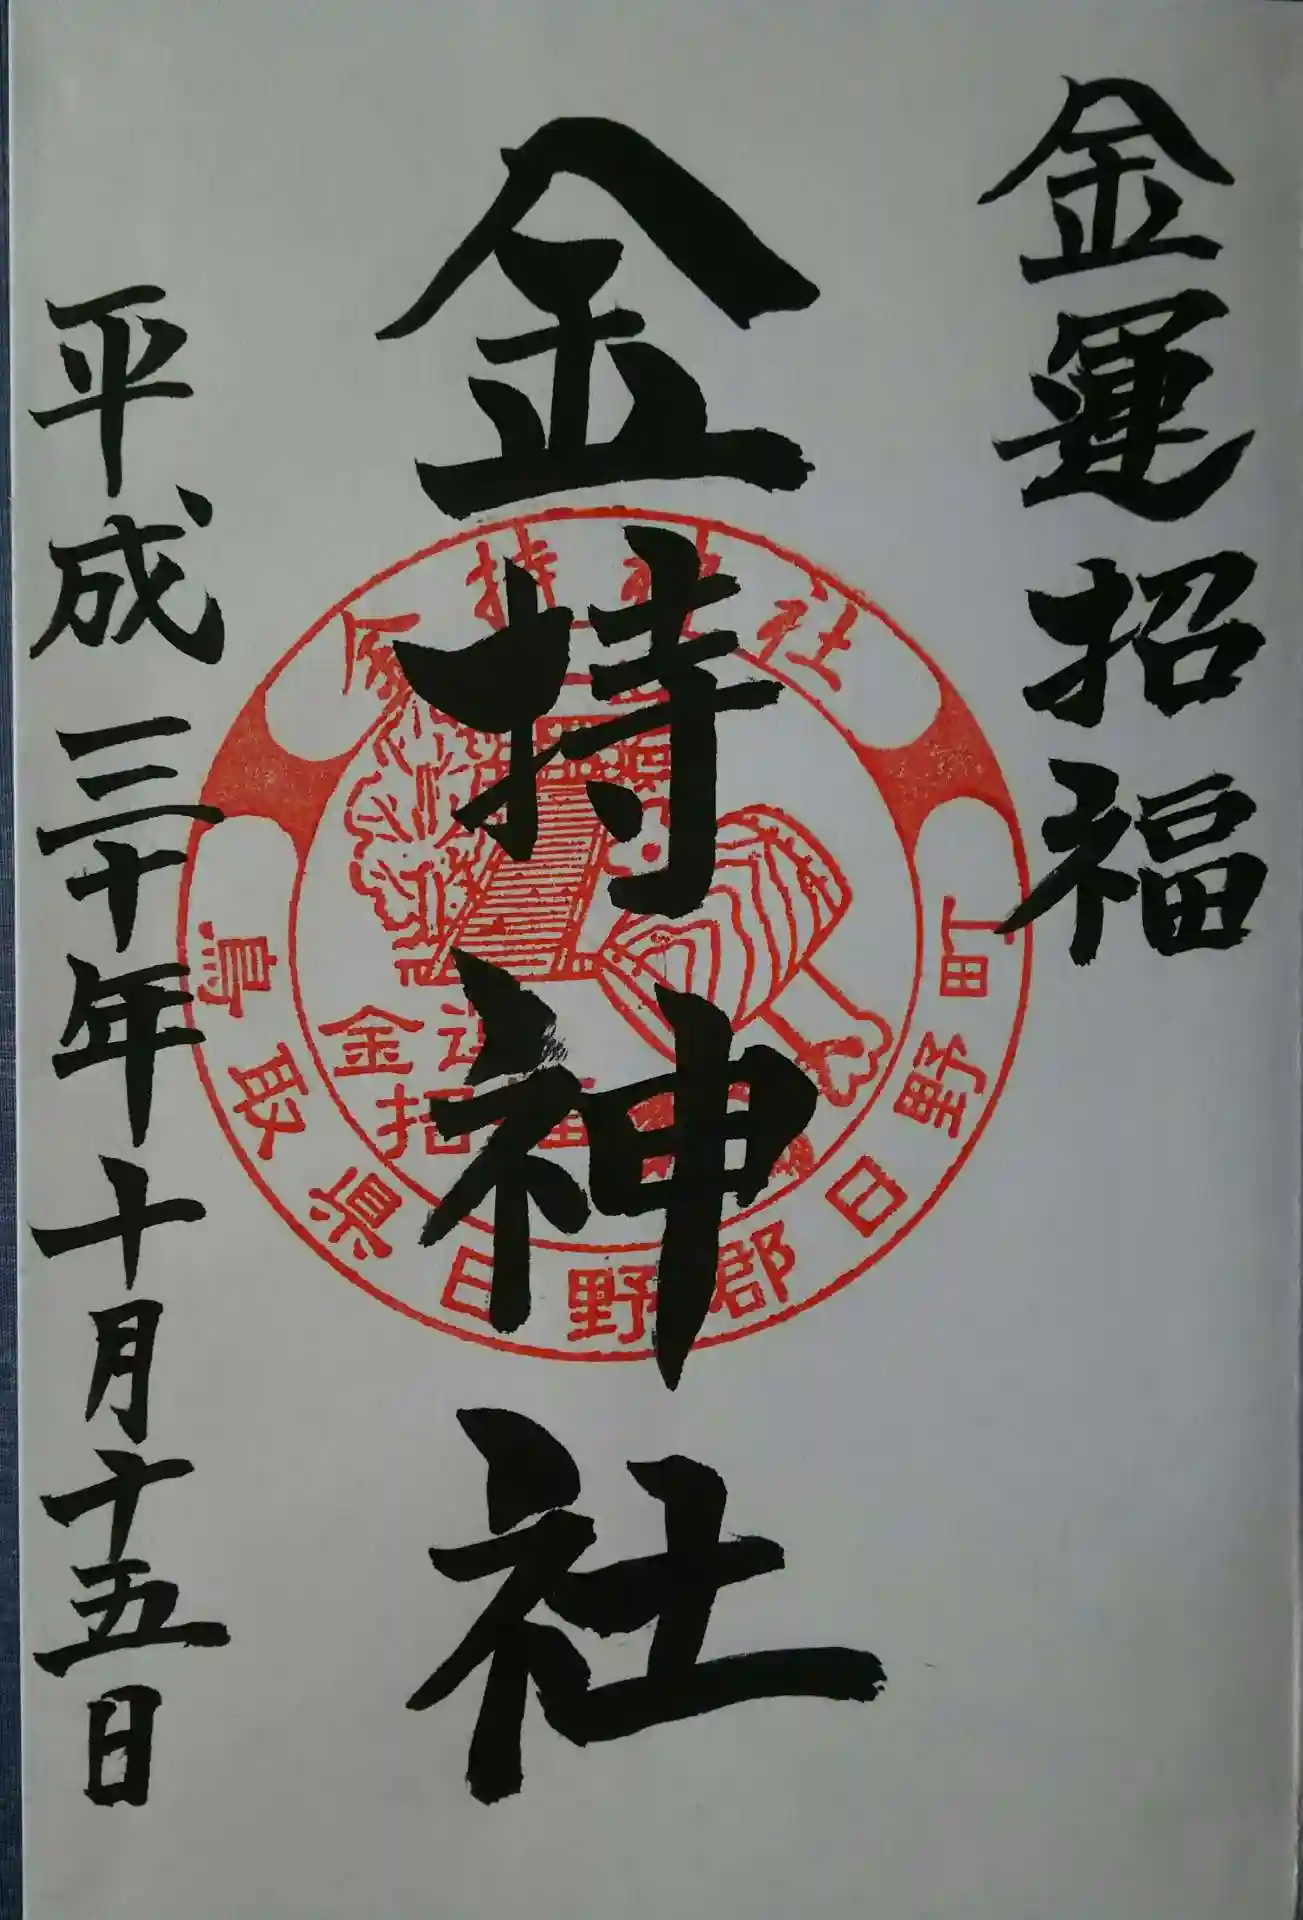 金運招福
金持神社
平成三十年十月十五日
金持神社
鳥取県日野郡日野町
金運
招福